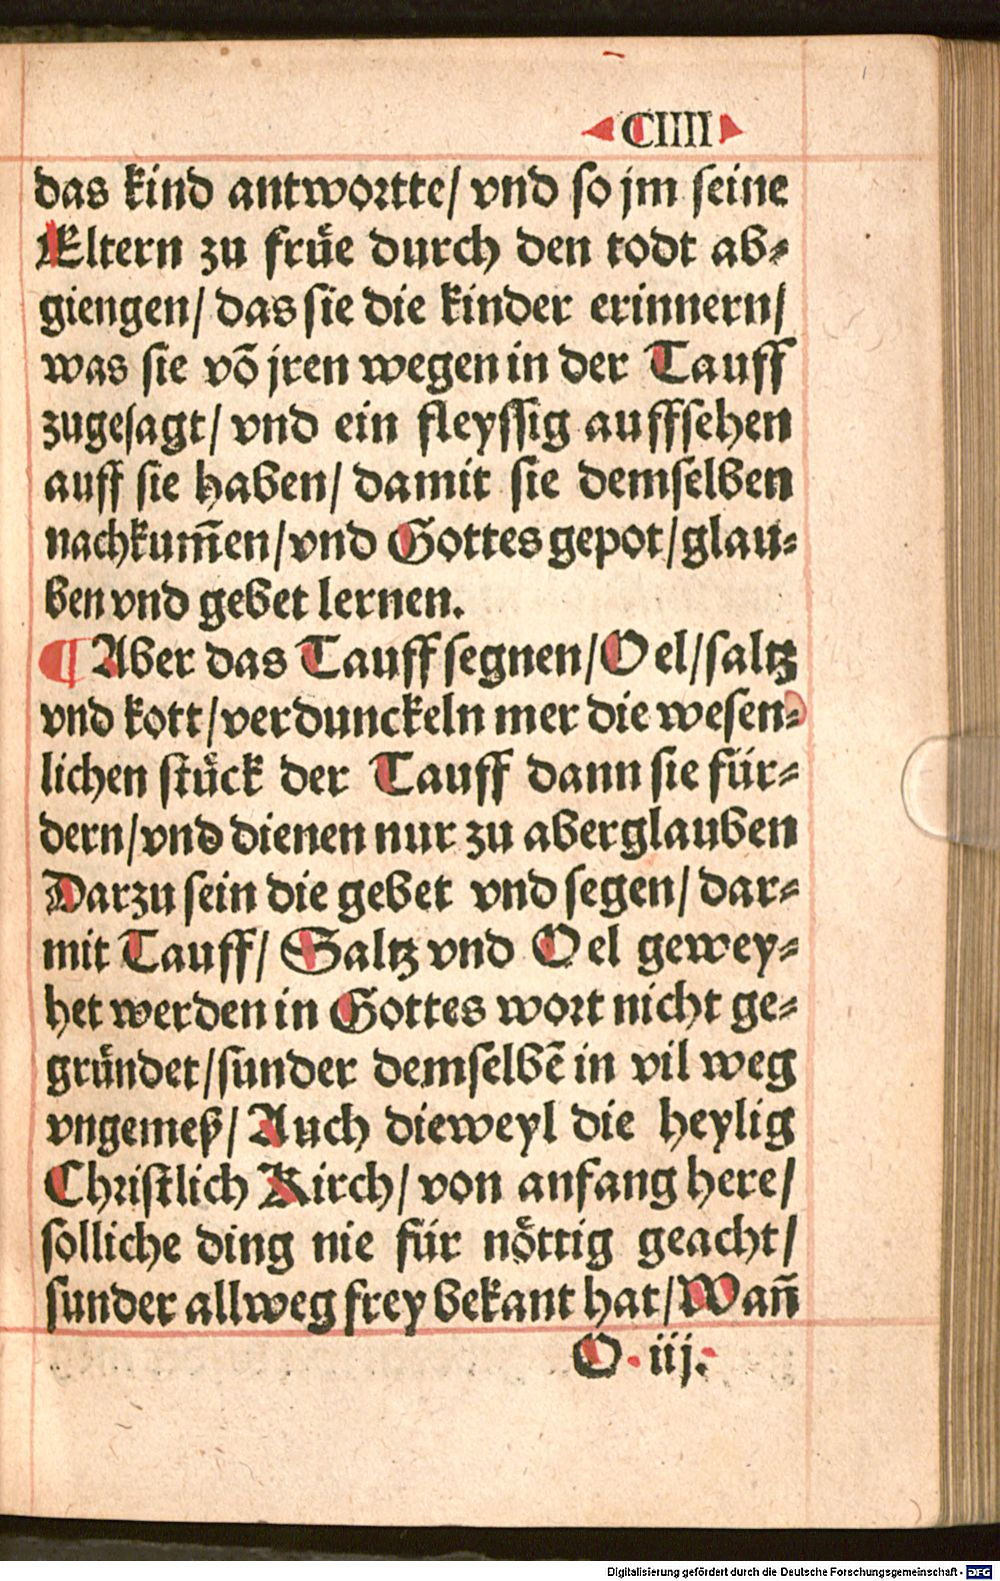 CIIII
das kind antwortte/ vnd so jm seine
Eltern zu früe durch den todt ab-
giengen/ das sie die kinder erinnern/
was sie võ jren wegen in der Tauff
zugesagt/ vnd ein fleyssig auffsehen
auff sie haben/ damit sie demselben
nachkum̃en/ vnd Gottes gepot/ glau-
ben vnd gebet lernen.
¶ Aber das Tauff segnen/ Oel/ saltz
vnd kott/ verdunckeln mer die wesen-
lichen stück der Tauff dann sie für-
dern/ vnd dienen nur zu aberglauben
Darzu sein die gebet vnd segen/ dar-
mit Tauff/ Saltz vnd Oel gewey-
het werden in Gottes wort nicht ge-
gründet/ sunder demselbẽ in vil weg
vngemeß/ Auch dieweyl die heylig
Christlich Kirch/ von anfang here/
solliche ding nie für nöttig geacht/
sunder allweg frey bekant hat/ Wañ
O. iij.
Digitalisierung gefördert durch die Deutsche Forschungsgemeinschaft - DFG